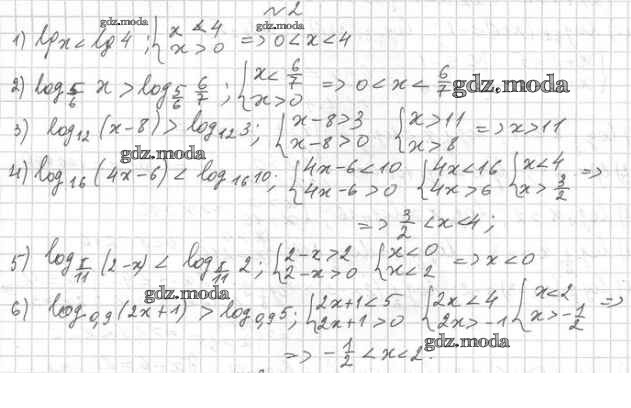 №2
gdz.moda gdz.moda
1) lg x < lg 4; { x < 4 x > 0 => 0 < x < 4
2) log_{5/6} x > log_{5/6} 6/7; { x < 6/7 x > 0 => 0 < x < 6/7 gdz.moda
3) log₁₂(x-8) > log₁₂3; { x-8>3 x-8>0 { x>11 x>8 => x>11
gdz.moda
4) log₁₆(4x-6) < log₁₆10; { 4x-6<10 4x-6>0 { 4x<16 4x>6 { x<4 x>3/2 =>
=> 3/2 < x < 4;
5) log_{π/11}(2-x) < log_{π/11} 2; { 2-x>2 2-x>0 { x<0 x<2 => x<0
gdz.moda
6) log₀,₉(2x+1) > log₀,₉5; { 2x+1<5 2x+1>0 { 2x<4 2x>-1 { x<2 x>-1/2 =>
gdz.moda
=> -1/2 < x < 2.